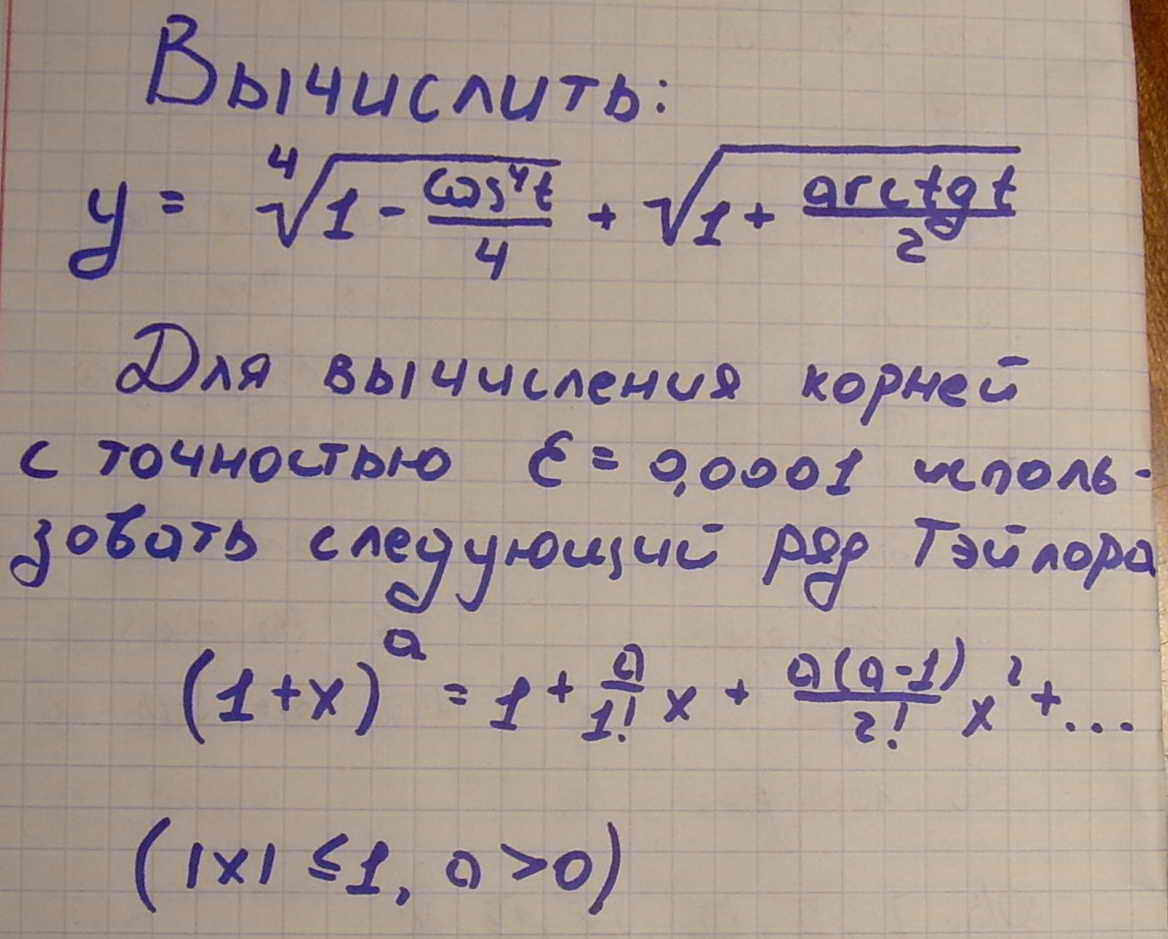 Вычислить:
y = ⁴√(1 - cos⁴t/4) + √(1 + arctg t/2)
Для вычисления корней
с точностью ε = 0,0001 исполь-
зовать следующий ряд Тэйлора
(1+x)ᵃ = 1 + a/1! x + a(a-1)/2! x² + ...
(|x| ≤ 1, a > 0)